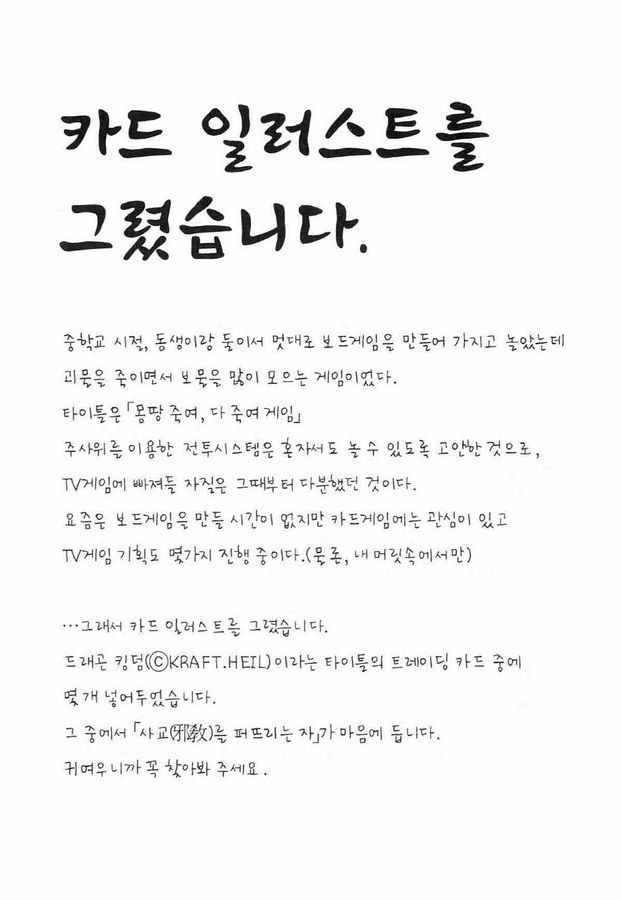 카드 일러스트를
그렸습니다.
중학교 시절, 동생이랑 둘이서 멋대로 보드게임을 만들어 가지고 놀았는데
괴물을 죽이면서 보물을 많이 모으는 게임이었다.
타이틀은 「몽땅 죽여, 다 죽여 게임」
주사위를 이용한 전투시스템은 혼자서도 놀 수 있도록 고안한 것으로,
TV게임에 빠져들 자질은 그때부터 다분했던 것이다.
요즘은 보드게임을 만들 시간이 없지만 카드게임에는 관심이 있고
TV게임 기획도 몇가지 진행 중이다.(물론, 내 머릿속에서만)
…그래서 카드 일러스트를 그렸습니다.
드래곤 킹덤(ⒸKRAFT.HEIL)이라는 타이틀의 트레이딩 카드 중에
몇 개 넣어두었습니다.
그 중에서 「사교(邪教)를 퍼뜨리는 자」가 마음에 듭니다.
귀여우니까 꼭 찾아봐 주세요.